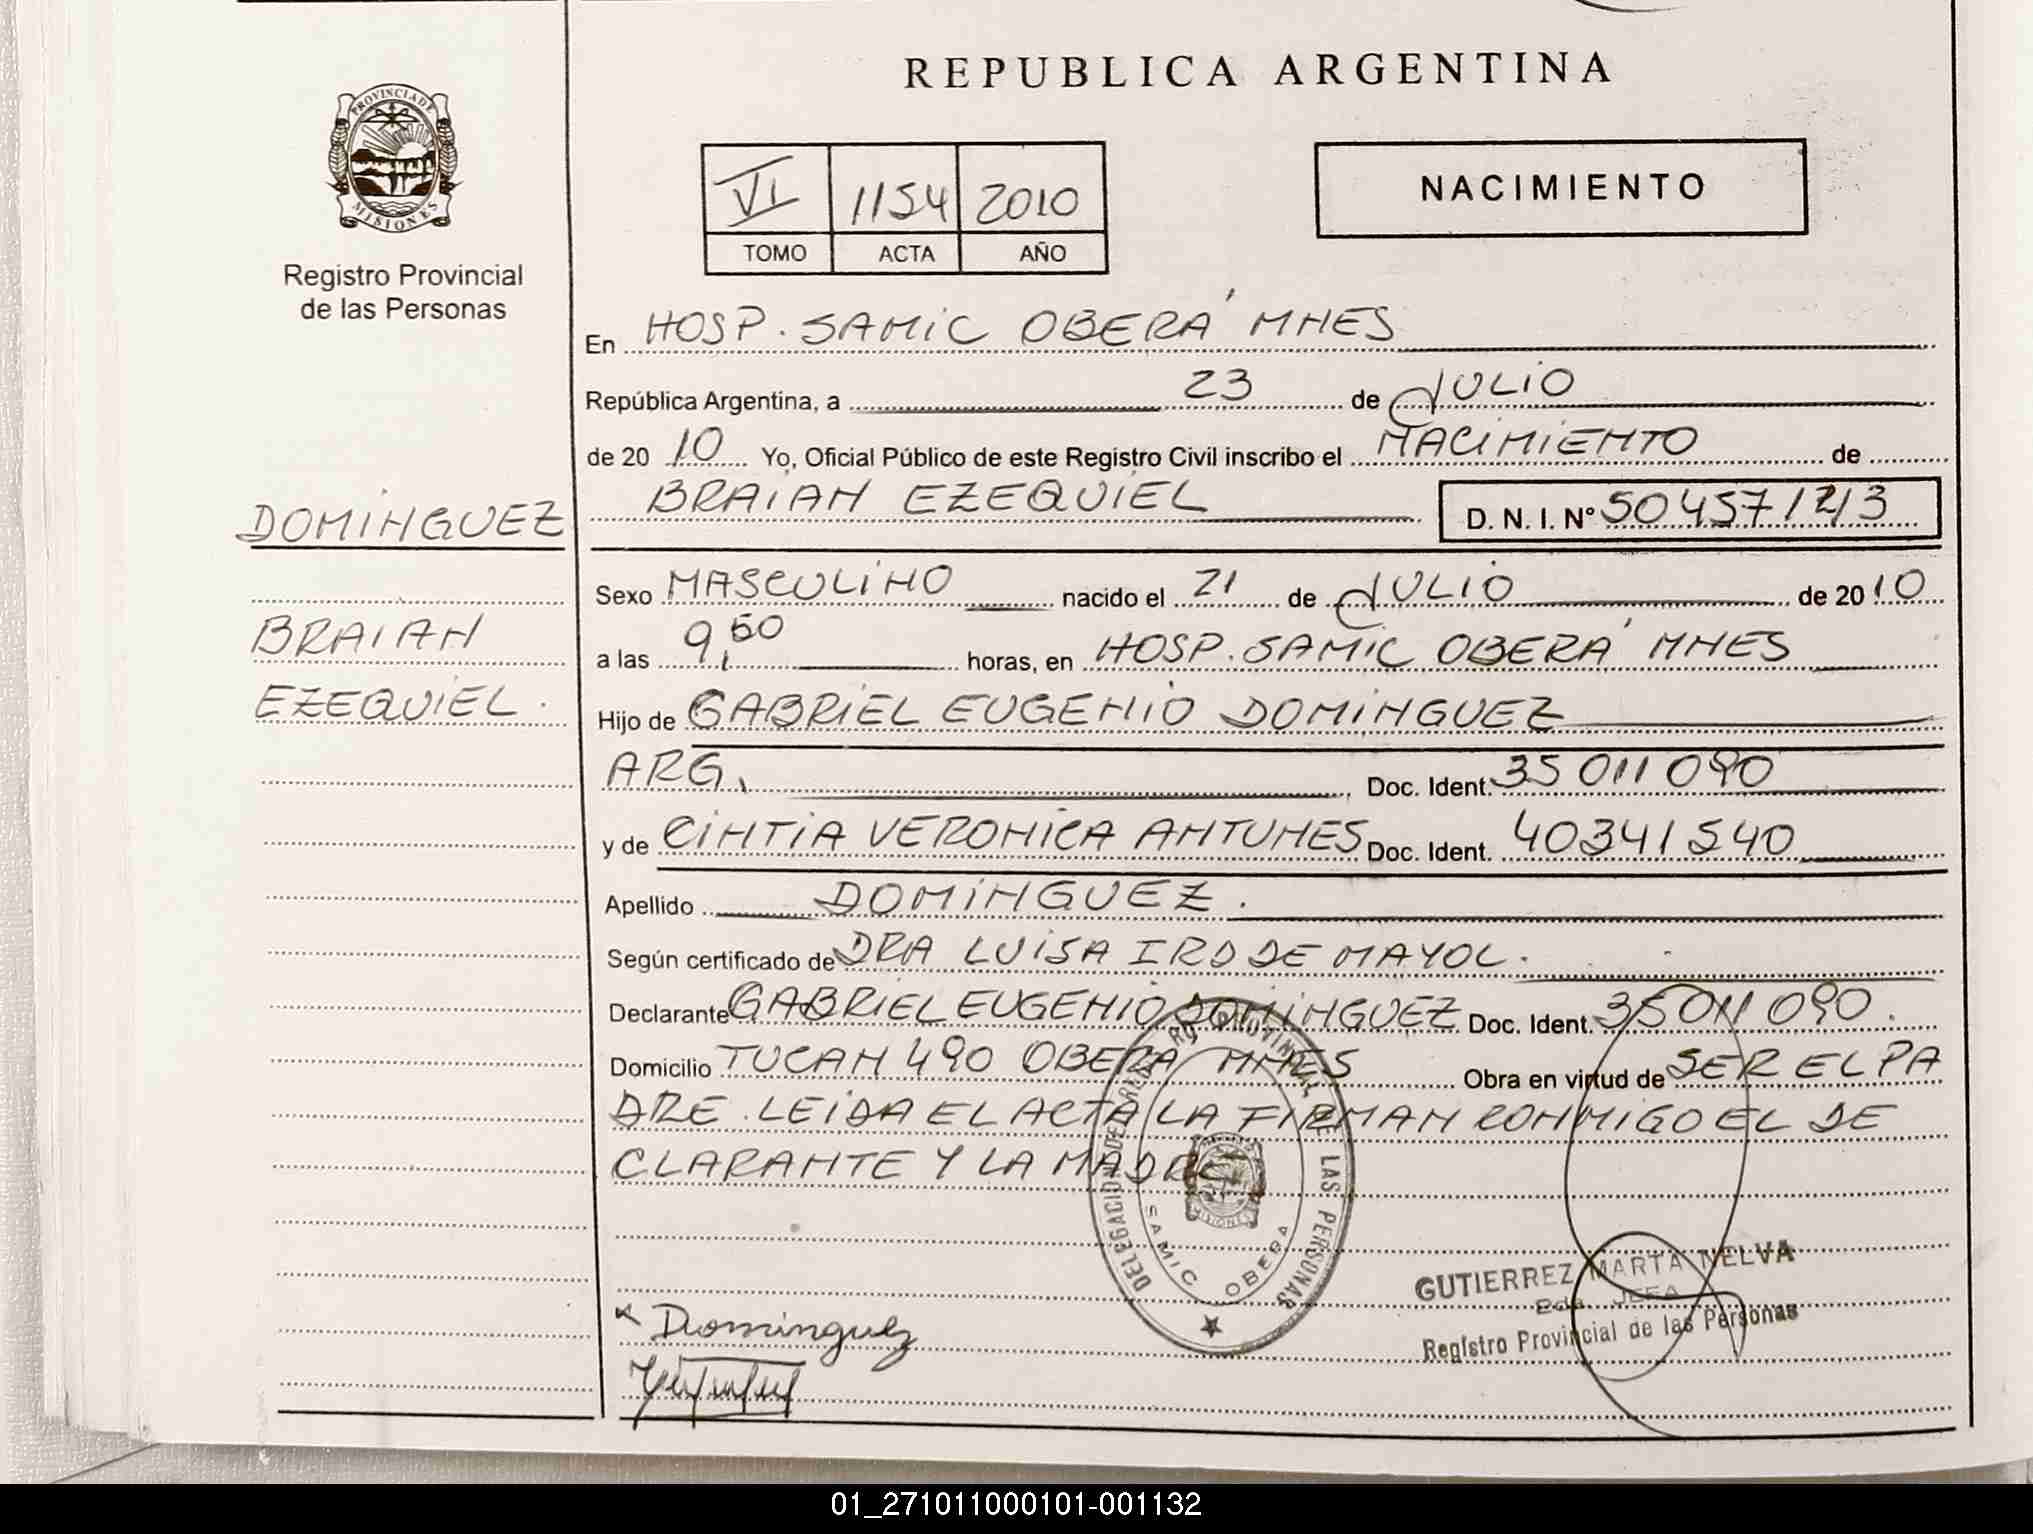 REPUBLICA ARGENTINA
PROVINCIA DE
MISIONES
Registro Provincial
de las Personas
VI 1154 2010
TOMO ACTA AÑO
NACIMIENTO
En HOSP. SAMIC OBERÁ MNES
República Argentina, a 23 de JULIO
de 20 10 Yo, Oficial Público de este Registro Civil inscribo el NACIMIENTO de
BRAIAN EZEQUIEL D. N. I. N° 50457123
DOMINGUEZ
BRAIAN
EZEQUIEL.
Sexo MASCULINO nacido el 21 de JULIO de 2010
a las 9,50 horas, en HOSP. SAMIC OBERÁ MNES
Hijo de GABRIEL EUGENIO DOMINGUEZ
ARG. Doc. Ident. 35 011 090
y de CINTIA VERONICA ANTUNES Doc. Ident. 40341540
Apellido DOMINGUEZ.
Según certificado de DRA LUISA DE MAYOL.
Declarante GABRIEL EUGENIO DOMINGUEZ Doc. Ident. 35 011 090.
Domicilio TUCAN 490 OBERA MNES Obra en virtud de SER EL PA
DRE. LEIDA EL ACTA LA FIRMAN CONMIGO EL DE
CLARANTE Y LA MADRE
DELEGACION DEL REG PROVINCIAL DE LAS PERSONAS
MISIONES
SAMIC OBERA
GUTIERREZ MARTA NELVA
JEFA
Registro Provincial de las Personas
Dominguez
01_271011000101-001132